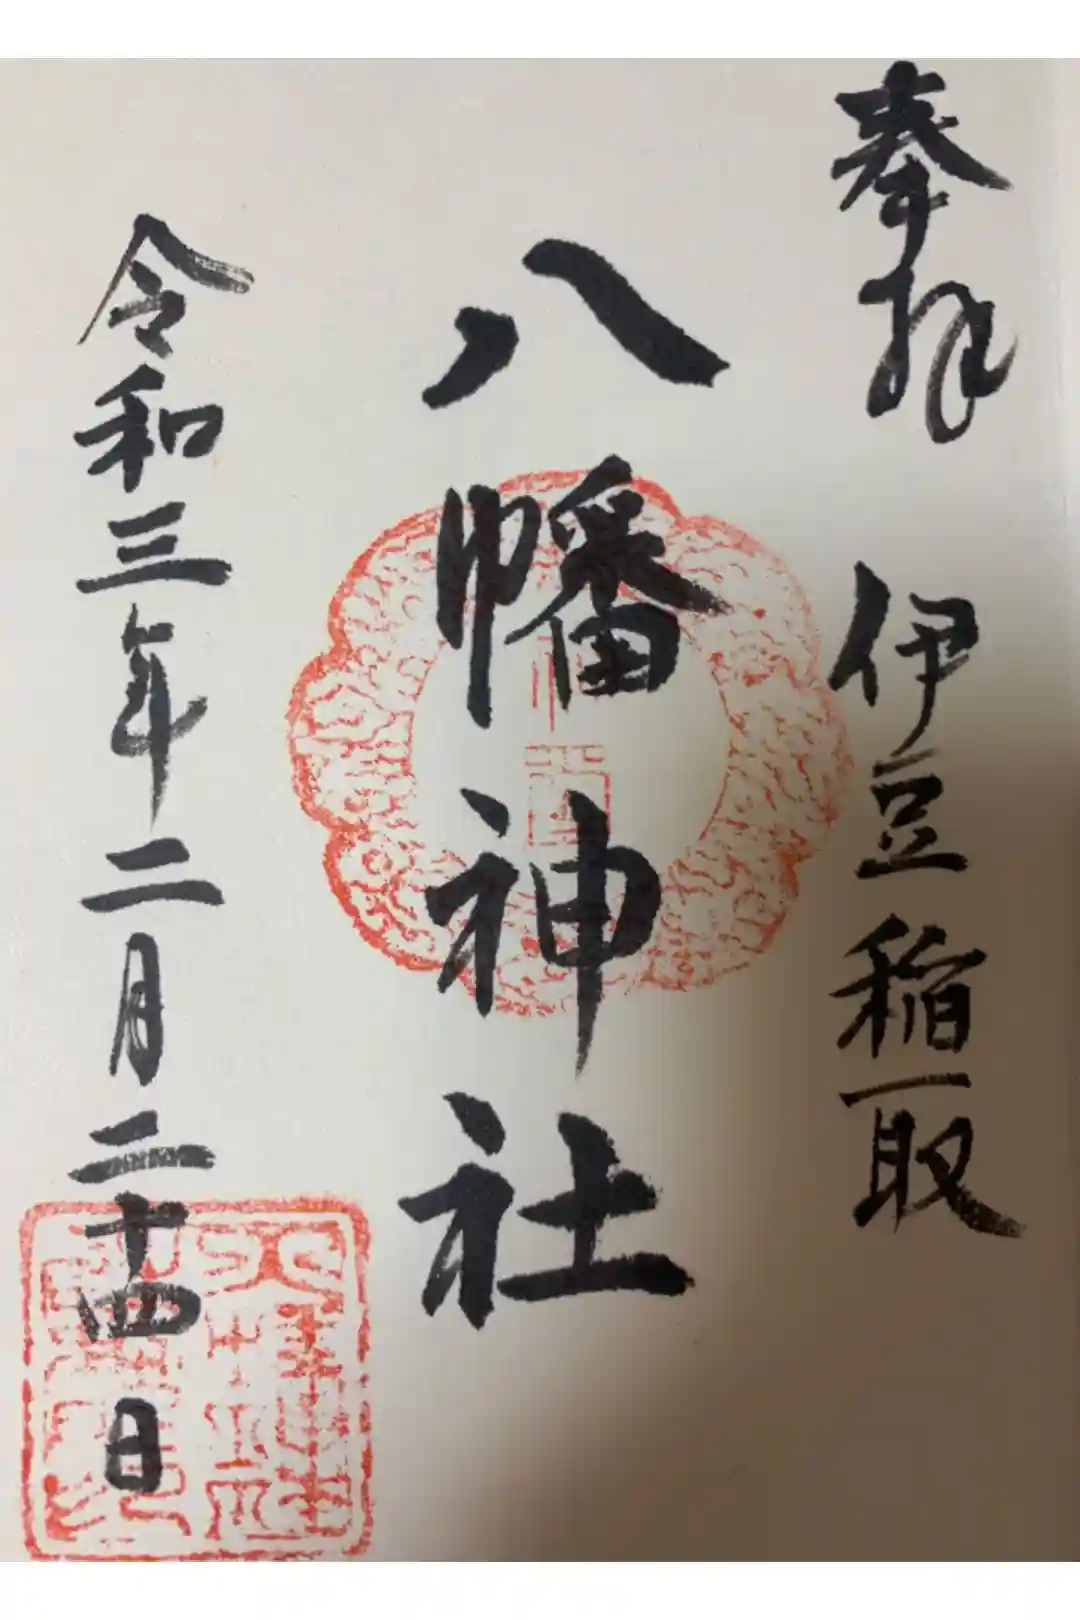 奉拝　伊豆稲取
八幡神社
令和三年二月二十四日